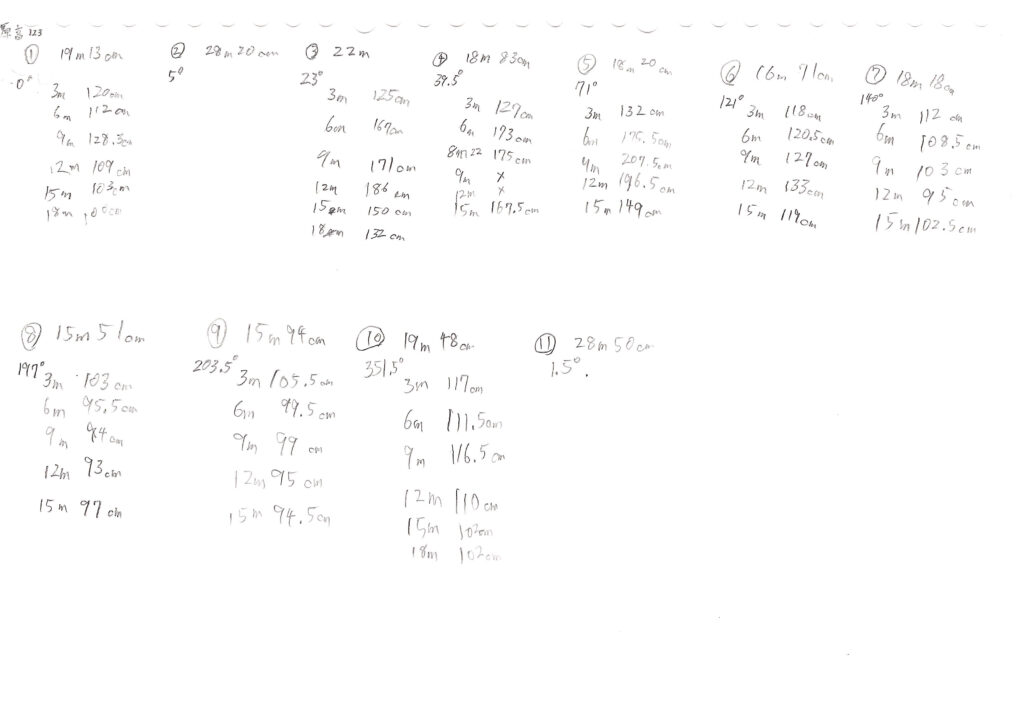 原高 123
① 19m 13cm
0°
3m 120cm
6m 112cm
9m 128.5cm
12m 109cm
15m 103cm
18m 105cm
② 28m 20cm
5°
③ 22m
23°
3m 125cm
6m 167cm
9m 171cm
12m 186cm
15m 150cm
18m 132cm
④ 18m 83cm
39.5°
3m 127cm
6m 173cm
8m22 175cm
9m x
12m x
15m 167.5cm
⑤ 18m 20cm
71°
3m 132cm
6m 175.5cm
9m 207.5cm
12m 196.5cm
15m 149cm
⑥ 16m 71cm
121°
3m 118cm
6m 120.5cm
9m 127cm
12m 133cm
15m 119cm
⑦ 18m 18cm
140°
3m 112cm
6m 108.5cm
9m 103cm
12m 95cm
15m 102.5cm
⑧ 15m 51cm
197°
3m 103cm
6m 95.5cm
9m 94cm
12m 93cm
15m 97cm
⑨ 15m 94cm
203.5°
3m 105.5cm
6m 99.5cm
9m 99cm
12m 95cm
15m 94.5cm
⑩ 19m 48cm
351.5°
3m 117cm
6m 111.5cm
9m 116.5cm
12m 110cm
15m 102cm
18m 102cm
⑪ 28m 50cm
1.5°